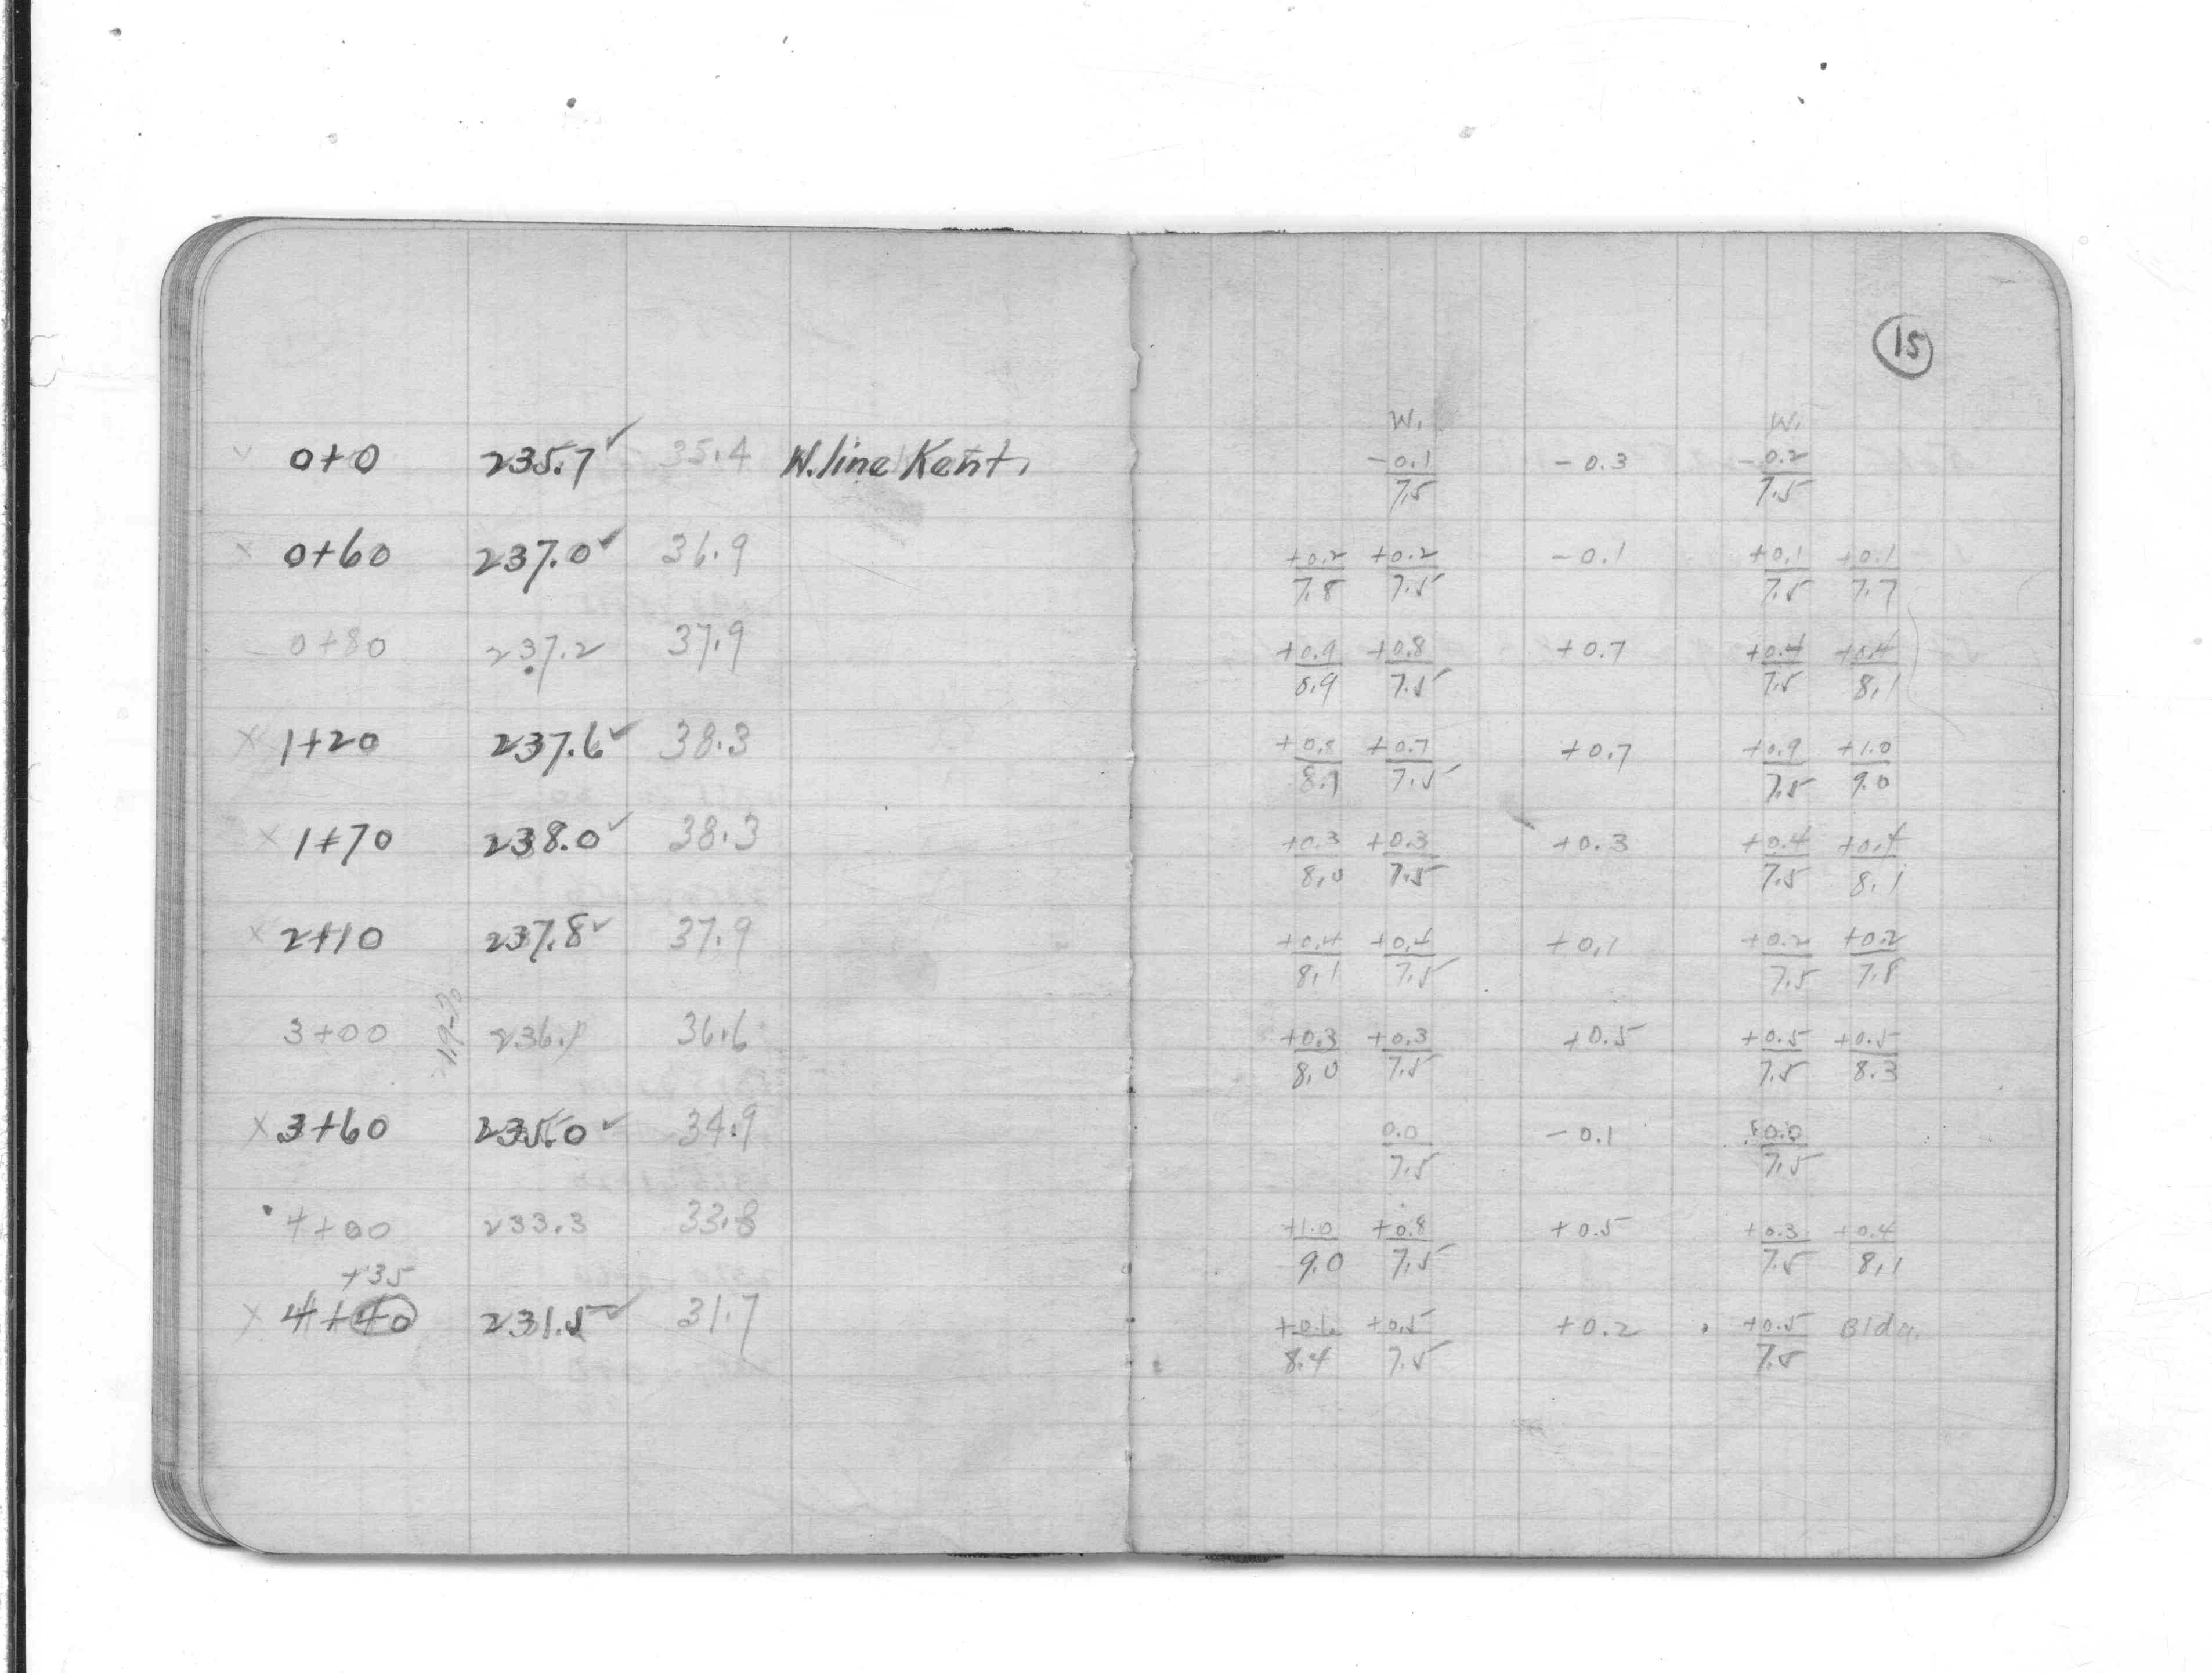 15
W. W.
× 0+0 235.7 ✓ 35.4 W. line Kent. -0.1/7.5 -0.3 -0.2/7.5
× 0+60 237.0 ✓ 36.9 +0.2/7.8 +0.2/7.5 -0.1 +0.1/7.5 +0.1/7.7
0+80 237.2 37.9 +0.9/8.9 +0.8/7.5 +0.7 +0.4/7.5 +0.4/8.1
× 1+20 237.6 ✓ 38.3 +0.8/ +0.7/7.5 +0.7 +0.9/7.5 +1.0/9.0
× 1+70 238.0 ✓ 38.3 +0.3/8.0 +0.3/7.5 +0.3 +0.4/7.5 +0.4/8.1
× 2+10 237.8 ✓ 37.9 +0.4/8.1 +0.4/7.5 +0.1 +0.2/7.5 +0.2/7.8
3+00 36.6 +0.3/8.0 +0.3/7.5 +0.5 +0.5/7.5 +0.5/8.3
× 3+60 235.0 ✓ 34.9 0.0/7.5 -0.1 0.0/7.5
4+00 233.3 33.8 +1.0/9.0 +0.8/7.5 +0.5 +0.3/7.5 +0.4/8.1
+35
× 4+40 231.5 ✓ 31.7 +0.6/8.4 +0.5/7.5 +0.2 +0.5/7.5 Bldg.